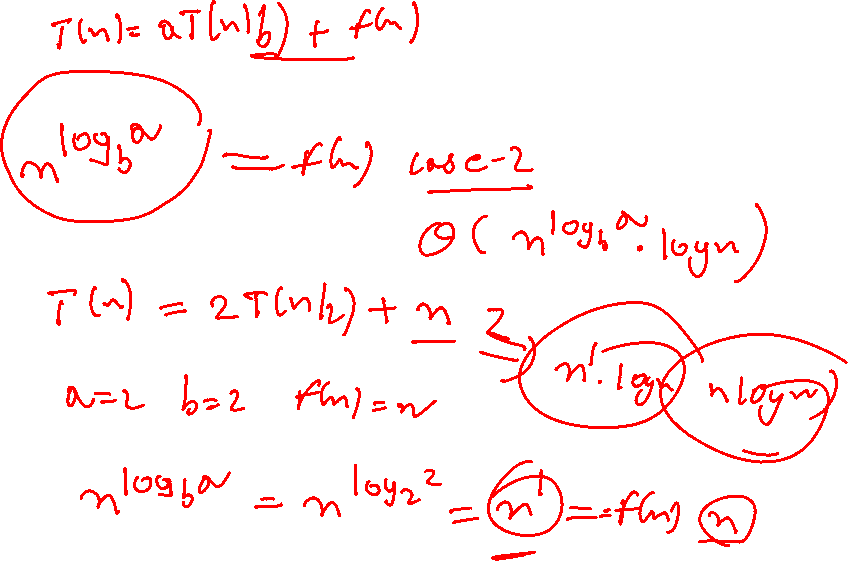 T(n) = aT(n/b) + f(n)
n^log_b a = f(n) case-2
Θ(n^log_b a . logn)
T(n) = 2T(n/2) + n 2
n^1 . logn nlogn
a=2 b=2 f(n)=n
n^log_b a = n^log_2 2 = n^1 = f(n) n